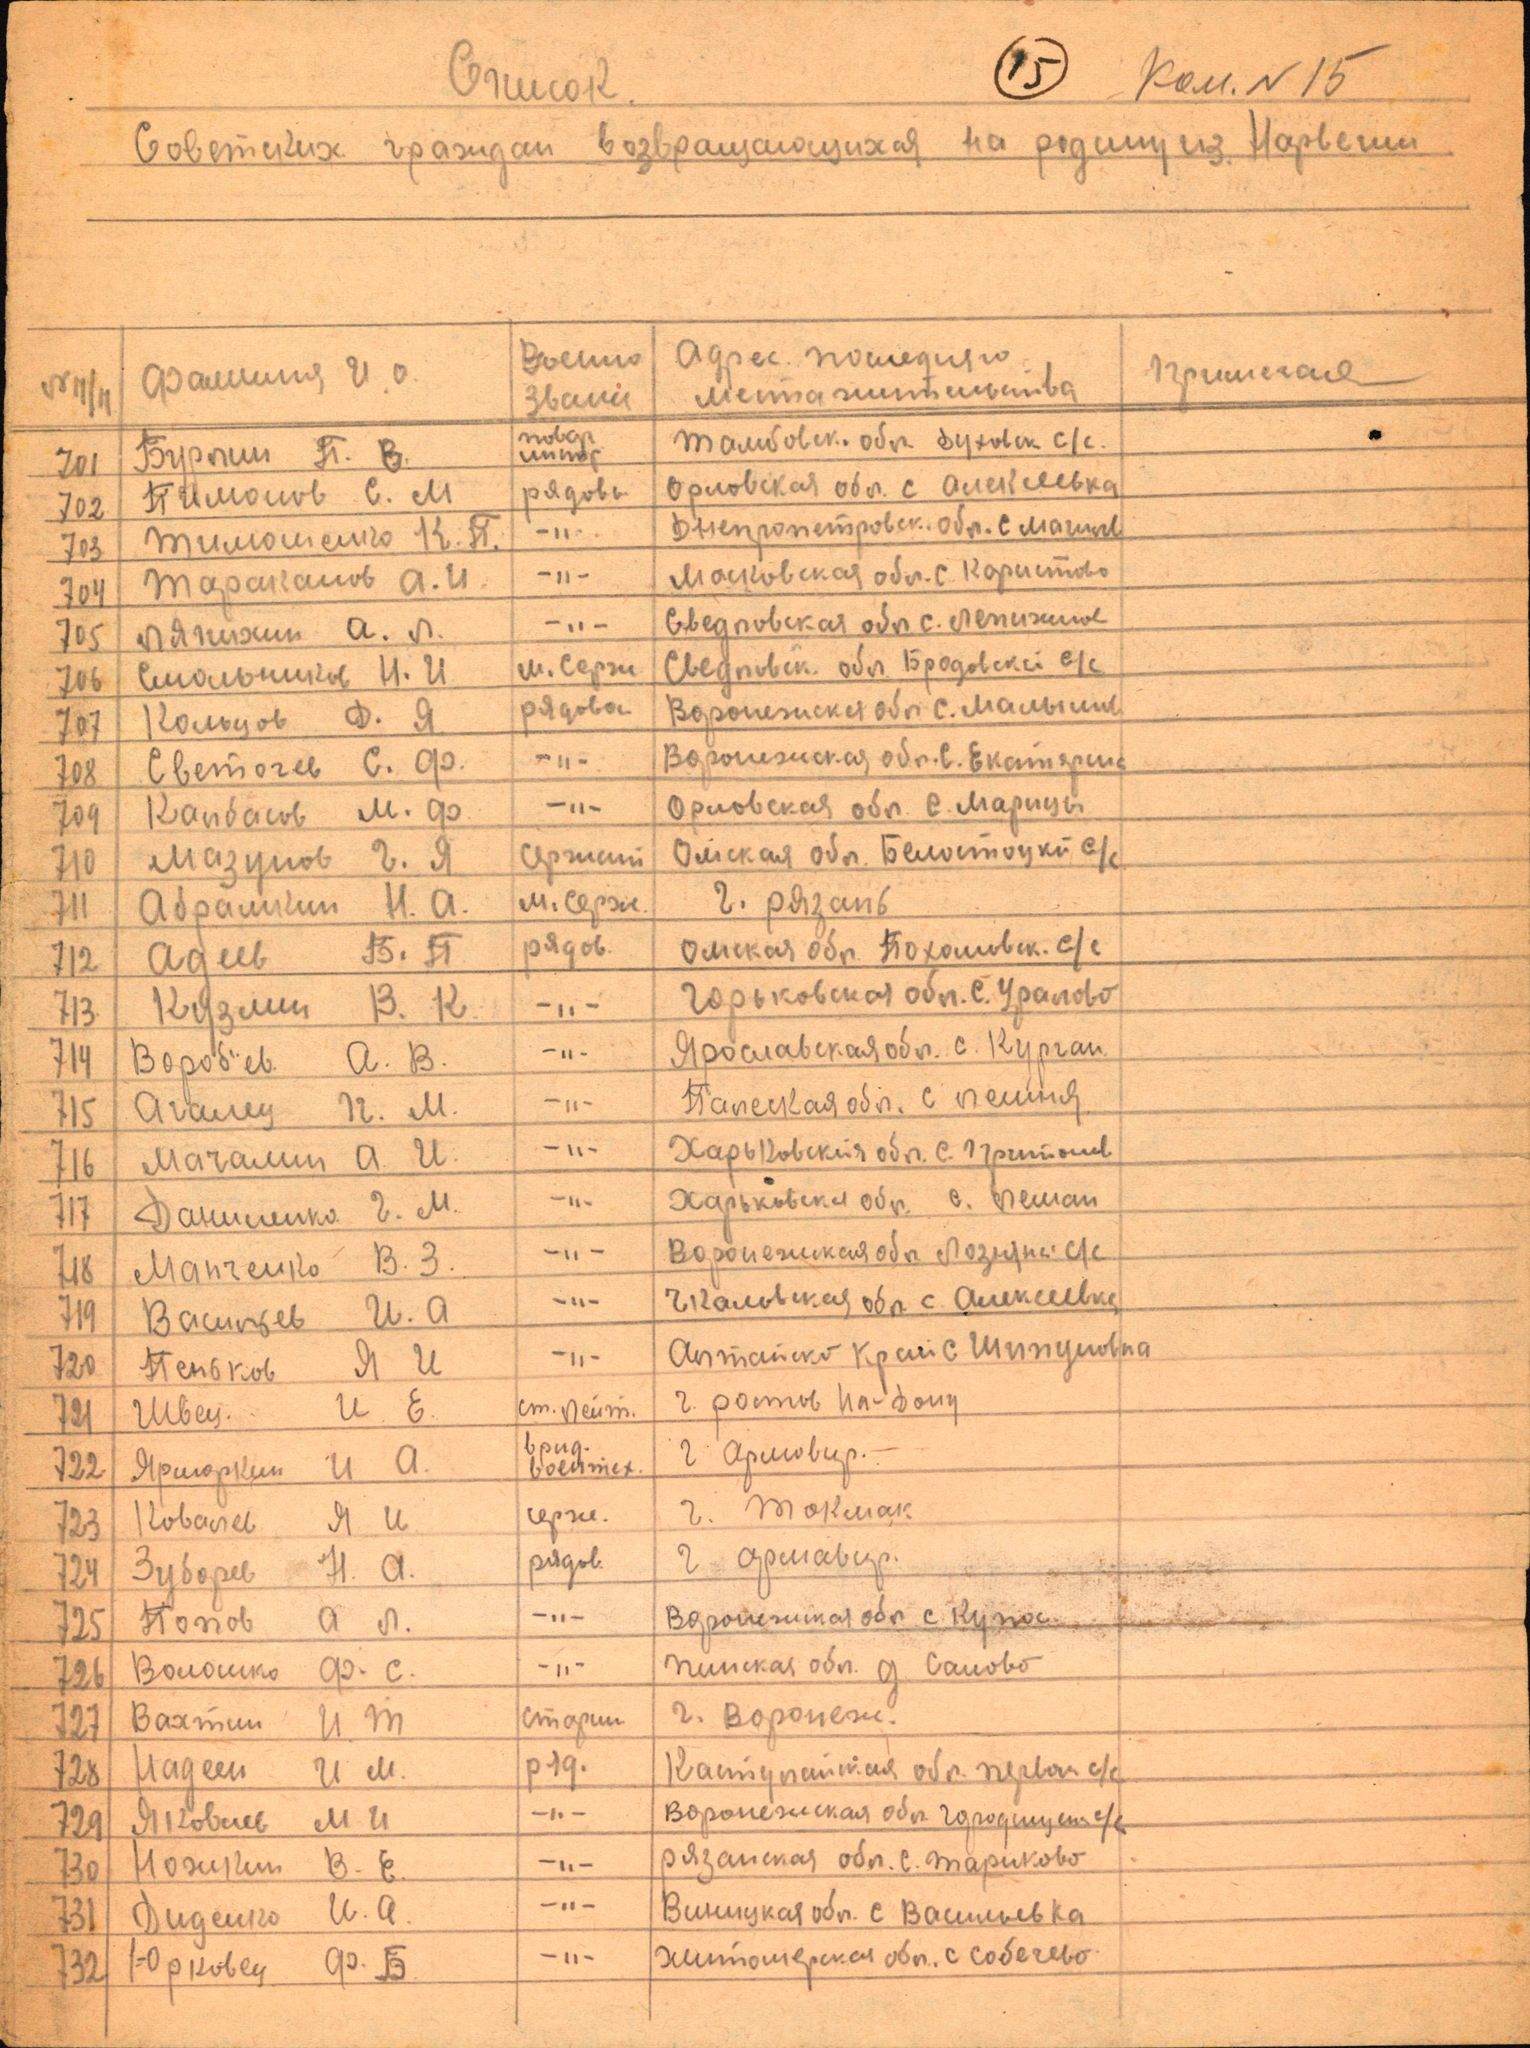 Список.
15 Кол. № 15
Советских граждан возвращающихся на родину из Нарвегии
№ п/п Фамилия И. о. Военно звани Адрес последняго места жительства Примечая
701 Бурмин П. В. Тамбовск. обл Духовск с/с.
702 Пимонов С. М рядовы Орловская обл. с Алексеевка
703 Тимошенко К. П. -"- Днепропетровск. обл. с
704 Тараканов А. И. -"- Московская обл. с Каристово
705 Ляпихин А. Л. -"- Сведловская обл с.
706 Смольников Н. И м. Серж Сведловск. обл Бродовской с/с
707 Кольцов Д. Я рядовой Воронежская обл с.
708 Светочев С. Ф. -"- Воронежская обл. с.
709 Калбасов М. Ф -"- Орловская обл с. Марицы
710 Мазунов Г. Я сержант Омская обл. Белостоцкй с/с
711 Абрамкин Н. А. м. серж. г. рязань
712 Адеев Б. П рядов. омская обл с/с
713 Кузмин В. К. -"- Горьковская обл. с. Уралово
714 Вороб"ев А. В. -"- Ярославская обл. с. Курган
715 П. М. -"- обл. с
716 Мачалин А И. -"- Харьковская обл. с.
717 Даниленко Г. М. -"- Харьковская обл с. Леман
718 Манченко В. З. -"- Воронежская обл с/с
719 Васильев И. А -"- Чкаловская обл с. Алексеевка
720 Пеньков Я И -"- Алтайско край с Шипуловка
721 Швец. И Е. ст. лейт. г. ростов На-Дону
722 Ярморкин И А. врид. воентех. г Армовир.
723 Ковалев Я И серж. г. Токмак
724 Зуборев Н. А. рядов. г армавир.
725 Попов А Л. -"- Воронежская обл с
726 Волошко Ф. С. -"- Пинская обл. д Салово
727 Вахтин И Т старш г. Воронеж.
728 Надеин И М. ряд. обл. с/с
729 Яковлев М И -"- Воронежская обл с/с
730 Ножкин В. Е. -"- рязанская обл. с. Тариково
731 Диденко И. А. -"- Виницкая обл. с Васильевка
732 Юрковец Ф. Б -"- житомерская обл. с Собечево